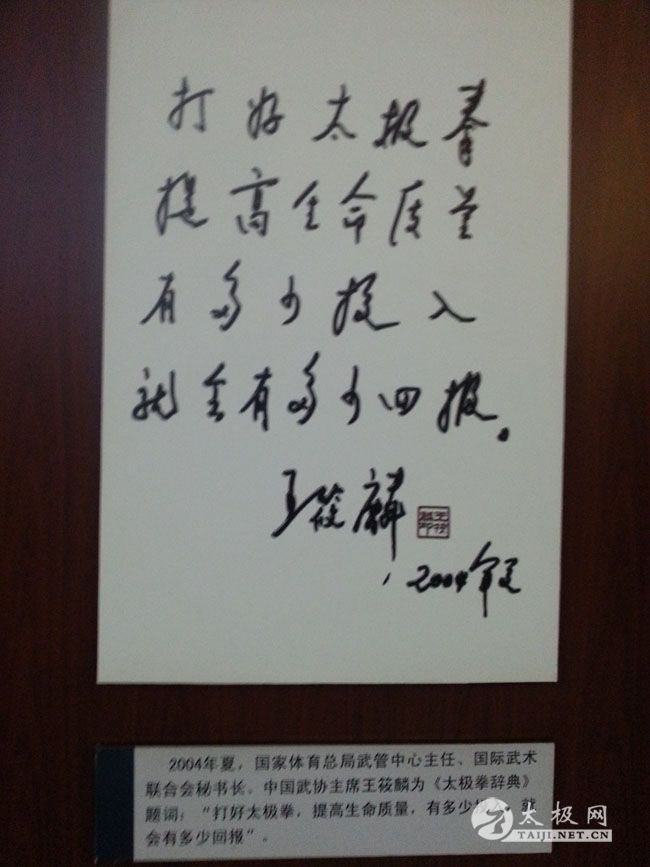 打好太极拳
提高生命质量
有多少投入
就会有多少回报。
王筱麟
2004年夏
2004年夏，国家体育总局武管中心主任、国际武术
联合会秘书长、中国武协主席王筱麟为《太极拳辞典》
题词：“打好太极拳，提高生命质量，有多少投入，就
会有多少回报”。
太极网
TAIJI.NET.CN